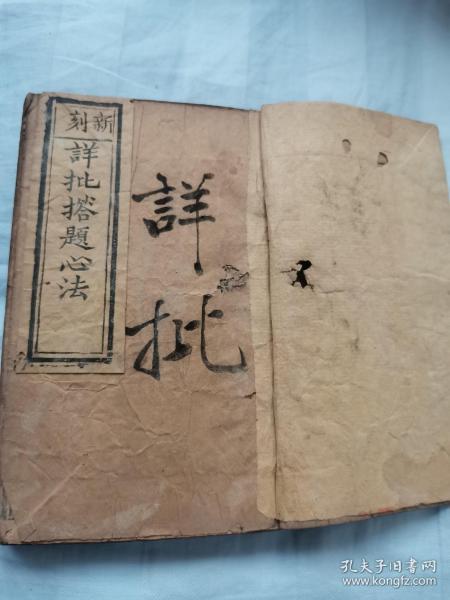 新刻
詳批搭題心法
詳批
孔夫子旧书网
www.kongfz.com